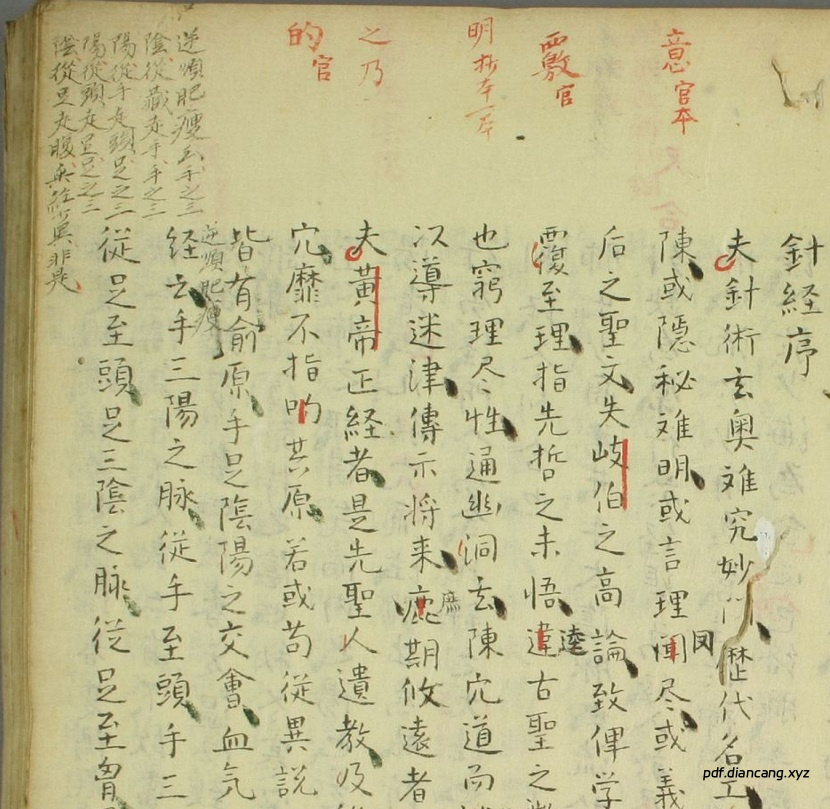 意官本
覈官
明抄本一本
之乃
的官
逆順肥瘦云手之三
陰從藏走手手之三
陽從手走頭足之三
陽從頭走足足之三
陰從足走腹與經異非是
針経序
夫針術玄奥难究妙門歴代名工
陳或隱秘难明或言理闻尽或義
罔
后之聖文失岐伯之高論致俾学
覆至理指先哲之未悟違古聖之
逵
也窮理尽性通幽洞玄陳穴道而
以導迷津傳示将来庶期攸遠者
庶
夫黄帝正経者是先聖人遺教及
穴靡不指昀其原若或苟從異説
皆有俞原手足陰陽之交會血气
逆順肥瘦
経云手三陽之脉從手至頭手三
從足至頭足三陰之脉從足至胷
pdf.diancang.xyz